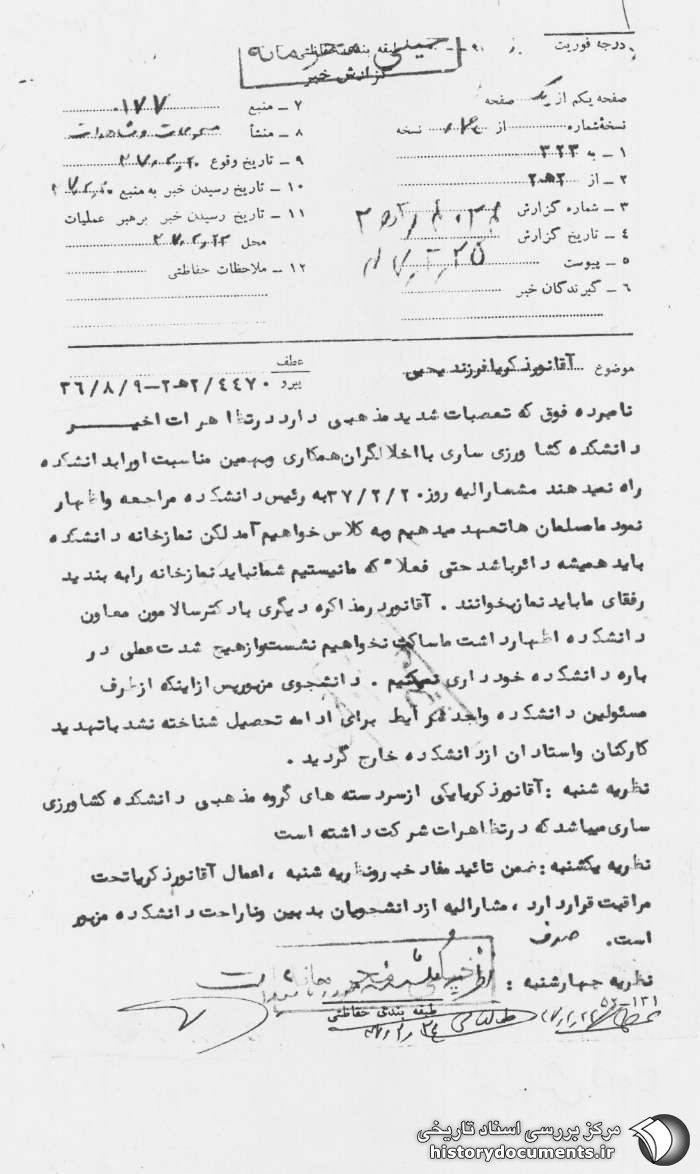 درجه فوریت
طبقه بندی حفاظتی
خیلی محرمانه
گزارش خبر
صفحه یکم از یک صفحه
نسخهٔ شماره از نسخه
۱ ـ به ۳۲۳
۲ ـ از ۲ﻫ۲
۳ ـ شماره گزارش
۴ ـ تاریخ گزارش
۵ ـ پیوست
۶ ـ گیرندگان خبر
۷ ـ منبع ۰۱۷۷
۸ ـ منشأ
۹ ـ تاریخ وقوع ۳۷٫۲٫۲۰
۱۰ ـ تاریخ رسیدن خبر به منبع
۱۱ ـ تاریخ رسیدن خبر برهبر عملیات
محل
۱۲ ـ ملاحظات حفاظتی
موضوع آقانورذکریا فرزند یحیی
عطف
پیرو ۲/۴۴۷۰ﻫ۲-۳۶/۸/۹
نامبرده فوق که تعصبات شدید مذهبی دارد درتظاهرات اخیر
دانشکده کشاورزی ساری با اخلالگران همکاری وبهمین مناسبت اورابدانشکده
راه نمیدهند مشارالیه روز۳۷/۲/۲۰به رئیس دانشکده مراجعه واظهار
نمود مامسلمان هاتعهد میدهیم وبه کلاس خواهیم آمد لکن نمازخانه دانشکده
باید همیشه دائرباشد حتی فعلا" که مانیستیم شمانباید نمازخانه رابه بندید
رفقای ماباید نمازبخوانند . آقانوردرمذاکره دیگری بادکترسالامون معاون
دانشکده اظهارداشت ماساکت نخواهیم نشست وازهیچ شدت عملی در
باره دانشکده خودداری نمیکنیم . دانشجوی مزبورپس ازاینکه ازطرف
مسئولین دانشکده واجد شرایط برای ادامه تحصیل شناخته نشد باتهدید
کارکنان واستادان ازدانشکده خارج گردید .
نظریه شنبه :آقانورذکریایکی ازسردسته های گروه مذهبی دانشکده کشاورزی
ساری میباشد که درتظاهرات شرکت داشته است
نظریه یکشنبه :ضمن تائید مفاد خبرونظریه شنبه ، اعمال آقانورذکریاتحت
مراقبت قراردارد ، مشارالیه ازدانشجویان بدبین وناراحت دانشکده مزبور
است.
نظریه چهارشنبه :
طبقه بندی حفاظتی
۵۲-۱۳۱
مرکز بررسی اسناد تاریخی
historydocuments.ir